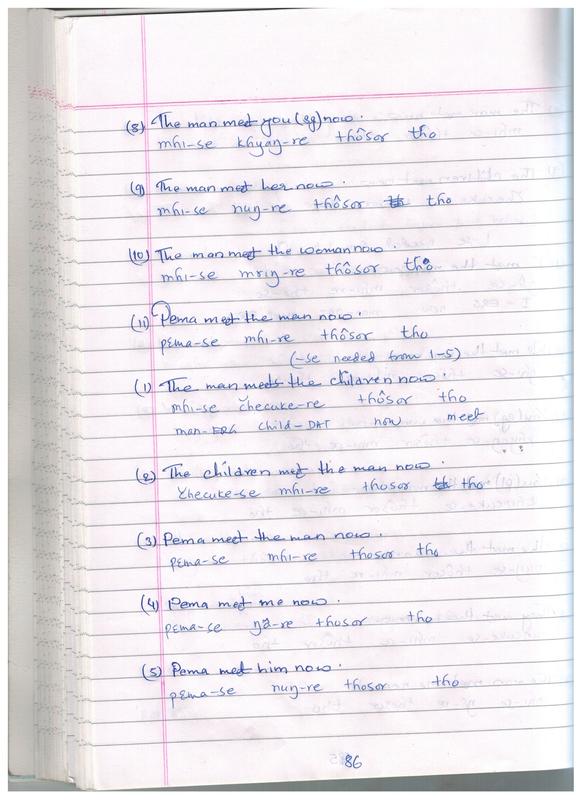 (8) The man met you (sg) now.
mhi-se khyaŋ-re thôsor tho
(9) The man met her now.
mhi-se nuŋ-re thôsor tho
(10) The man met the woman now.
mhi-se mriŋ-re thôsor tho
(11) Pema met the man now.
pɛma-se mhi-re thôsor tho
(-se needed from 1-5)
(1) The man meets the children now.
mhi-se čhecuke-re thôsor tho
man-ERG child-DAT now meet
(2) The children met the man now.
čhecuke-se mhi-re thosor tho
(3) Pema met the man now.
pɛma-se mhi-re thosor tho
(4) Pema met me now.
pɛma-se ŋâ-re thosor tho
(5) Pema met him now.
pɛma-se nuŋ-re thosor tho
86